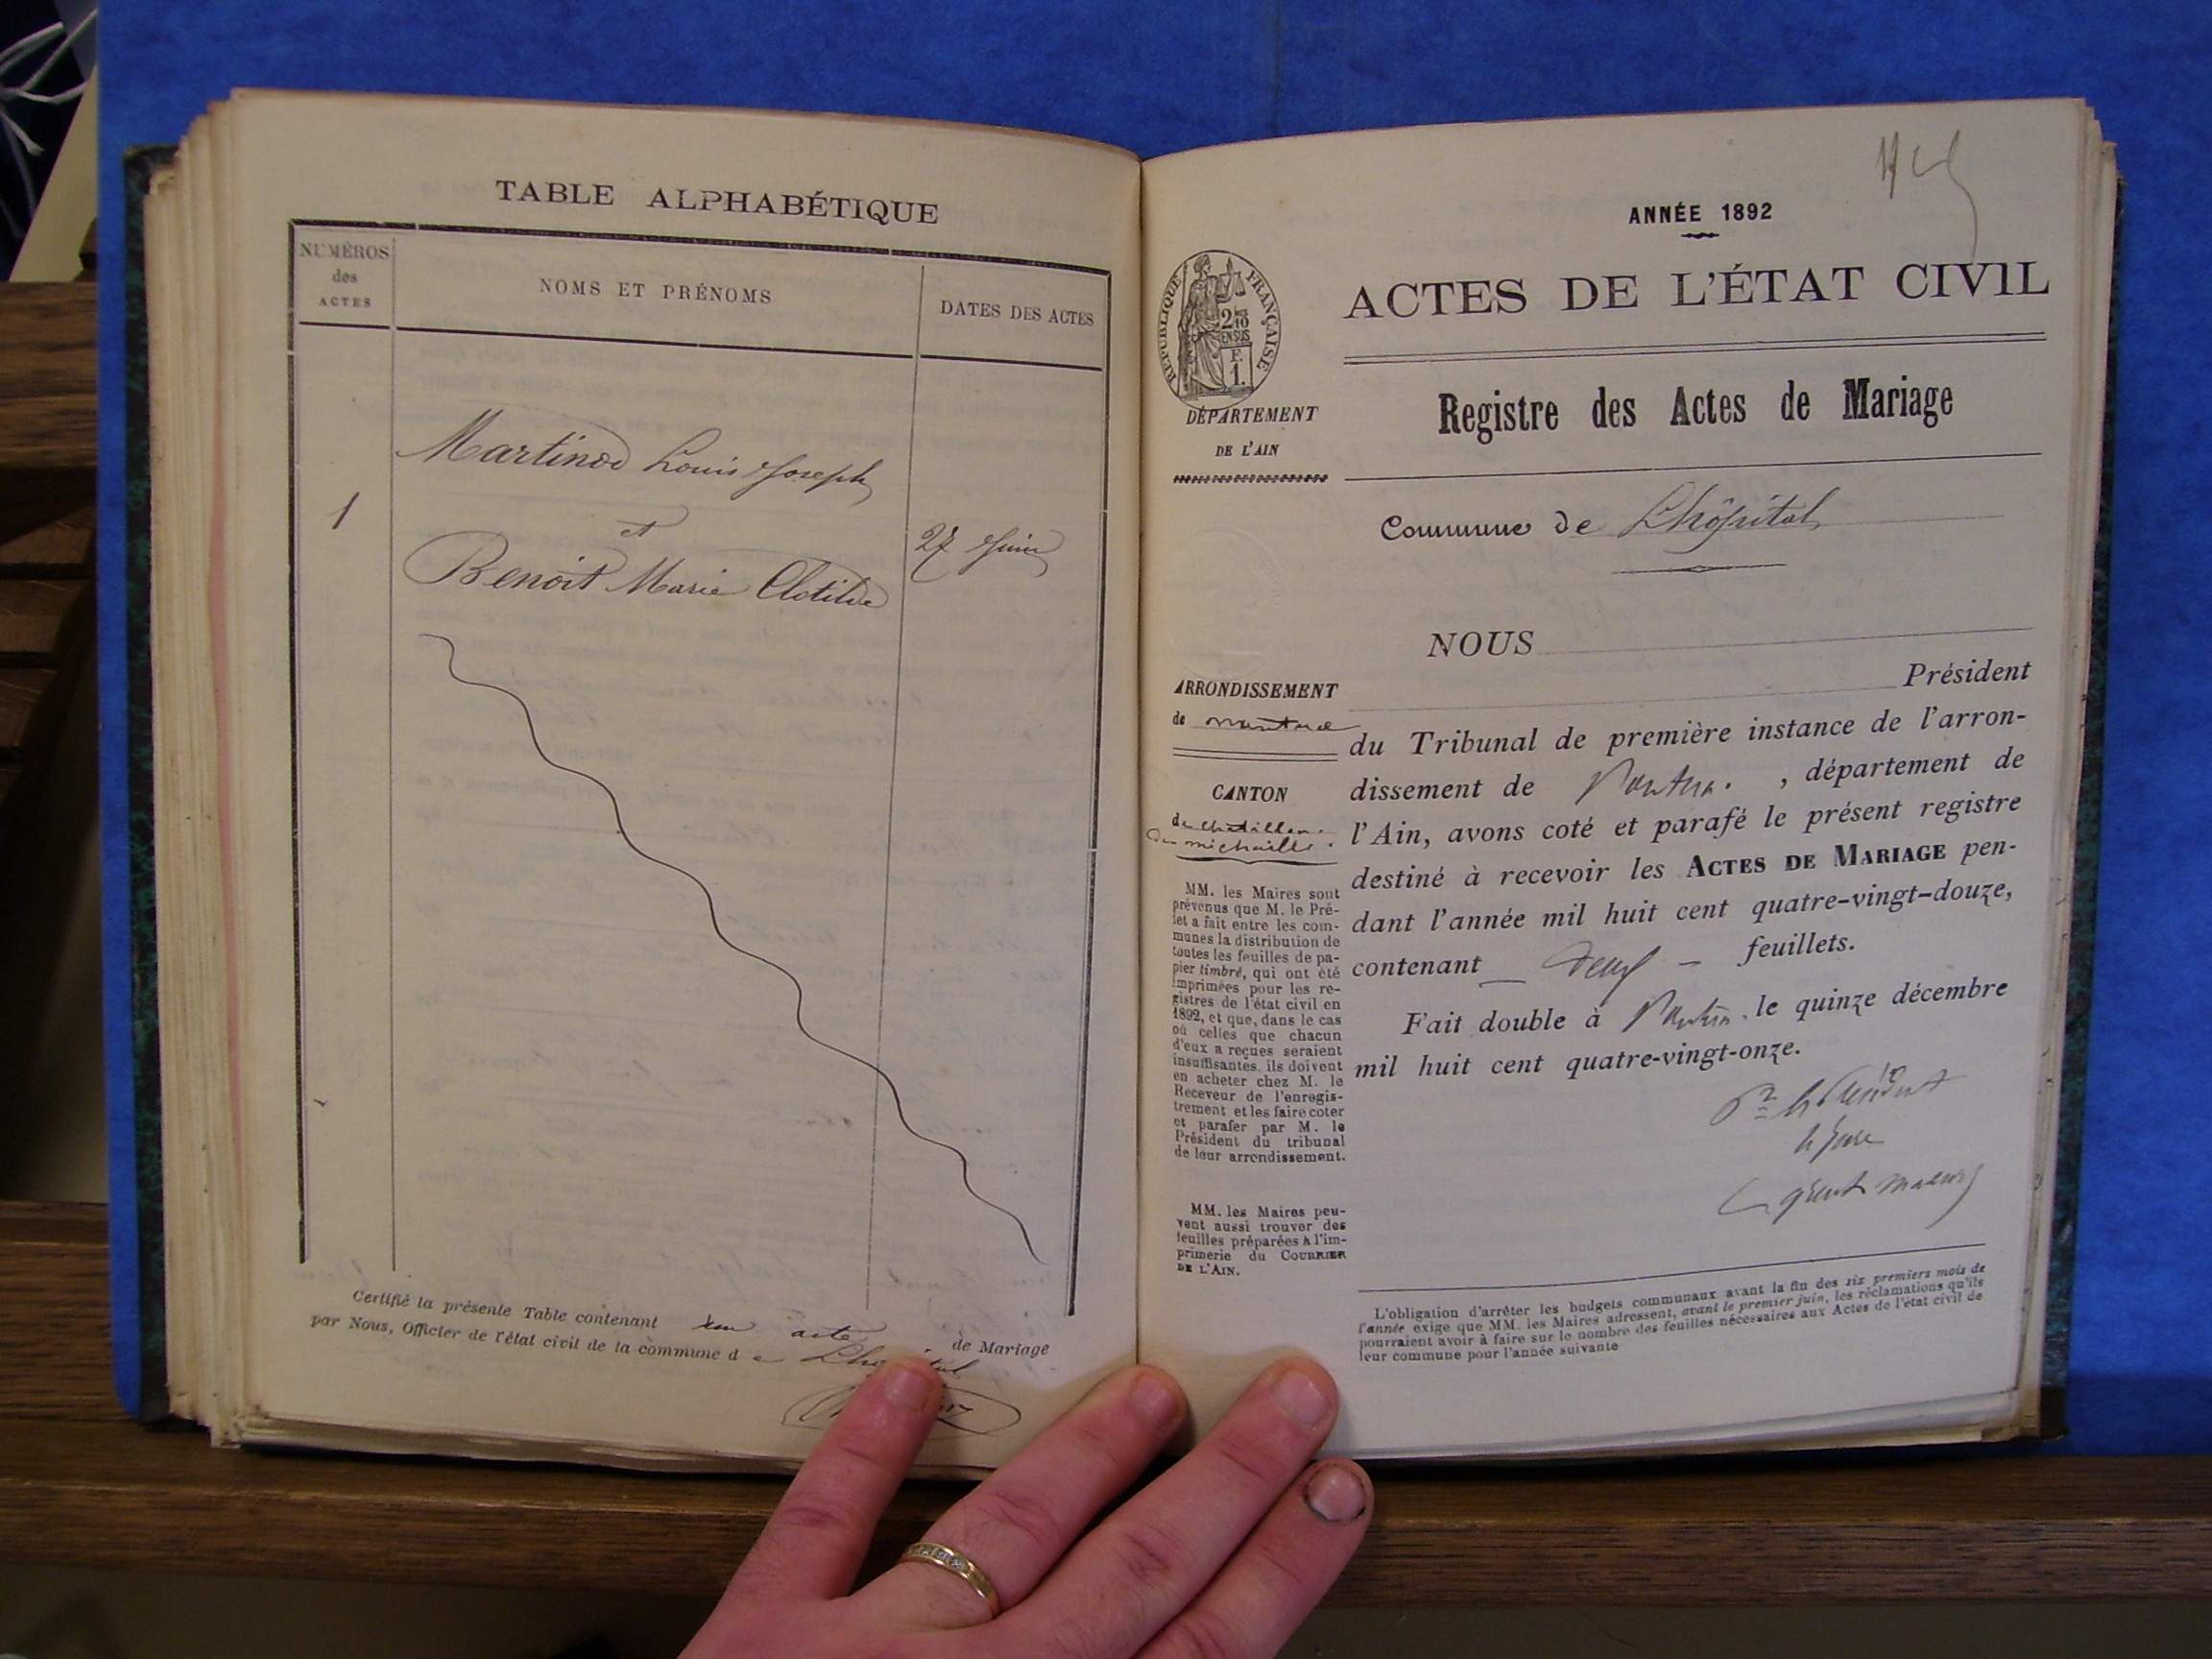 TABLE ALPHABÉTIQUE
NUMÉROS
des
ACTES
NOMS ET PRÉNOMS
DATES DES ACTES
Martinod Louis Joseph
1
et
27 Juin
Benoit Marie Clotilde
Certifié la présente Table contenant un acte de Mariage
par Nous, Officier de l'état civil de la commune d e Lhopital
ANNÉE 1892
RÉPUBLIQUE FRANÇAISE
ACTES DE L'ÉTAT CIVIL
DÉPARTEMENT
DE L'AIN
Registre des Actes de Mariage
Commune de Lhôpital
NOUS
Président
ARRONDISSEMENT
de nantua
CANTON
de chatillon
de michaille.
du Tribunal de première instance de l'arron-
dissement de Nantua. , département de
l'Ain, avons coté et parafé le présent registre
destiné à recevoir les ACTES DE MARIAGE pen-
dant l'année mil huit cent quatre-vingt-douze,
contenant deux feuillets.
Fait double à Nantua. le quinze décembre
mil huit cent quatre-vingt-onze.
MM. les Maires sont
prévenus que M. le Pré-
fet a fait entre les com-
munes la distribution de
toutes les feuilles de pa-
pier timbré, qui ont été
imprimées pour les re-
gistres de l'état civil en
1892, et que, dans le cas
où celles que chacun
d'eux a reçues seraient
insuffisantes, ils doivent
en acheter chez M. le
Receveur de l'enregis-
trement et les faire coter
et parafer par M. le
Président du tribunal
de leur arrondissement.
MM. les Maires peu-
vent aussi trouver des
feuilles préparées à l'im-
primerie du COURRIER
DE L'AIN.
Pr le Président
le Juge
L'obligation d'arrêter les budgets communaux avant la fin des six premiers mois de
l'année exige que MM. les Maires adressent, avant le premier juin, les réclamations qu'ils
pourraient avoir à faire sur le nombre des feuilles nécessaires aux Actes de l'état civil de
leur commune pour l'année suivante